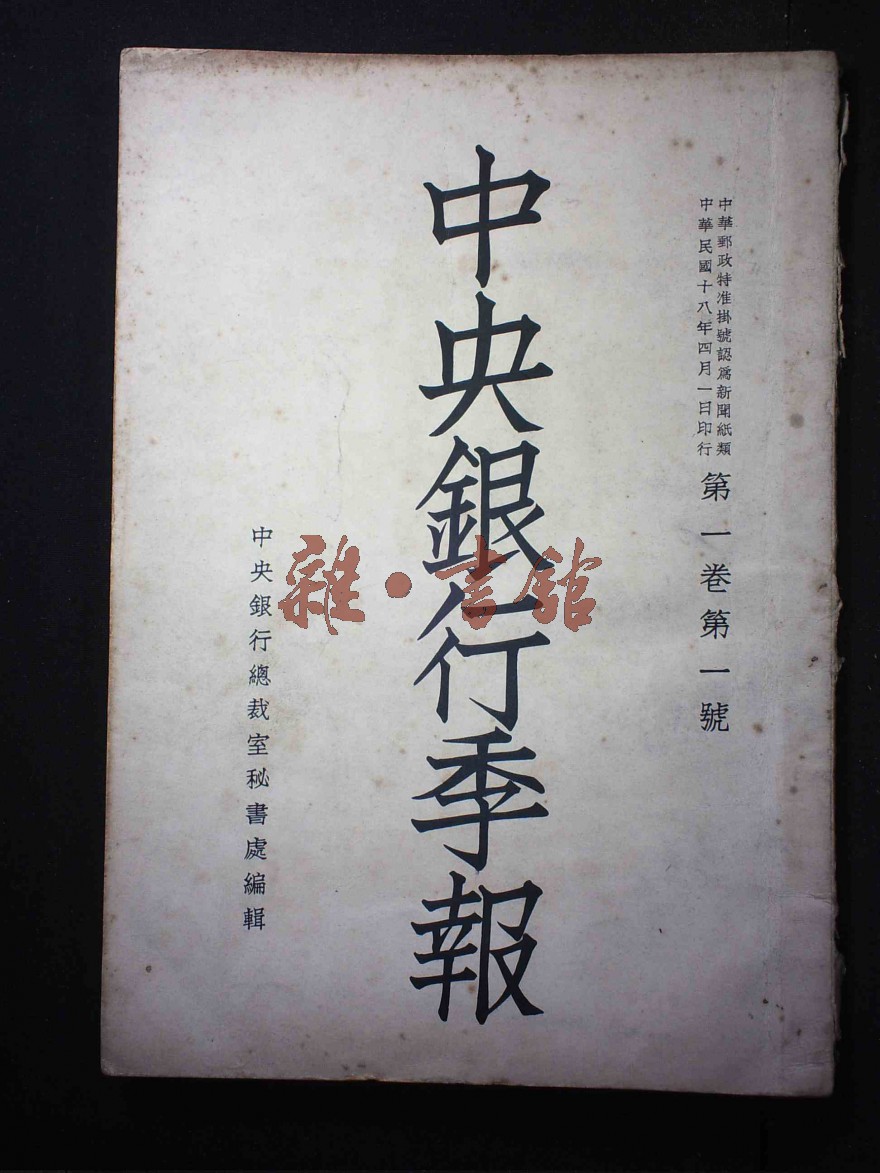 中華郵政特准掛號認爲新聞紙類
中華民國十八年四月一日印行
第一卷第一號
中央銀行季報
中央銀行總裁室秘書處編輯
雜·書館